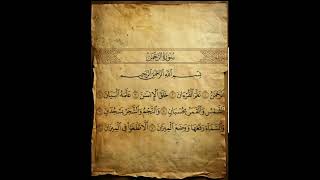 سُورَةُ الرَّحْمَٰن
بِسْمِ اللَّهِ الرَّحْمَٰنِ الرَّحِيمِ
الرَّحْمَٰنُ ۝ عَلَّمَ الْقُرْءَانَ ۝ خَلَقَ الْإِنسَٰنَ ۝ عَلَّمَهُ الْبَيَانَ ۝
الشَّمْسُ وَالْقَمَرُ بِحُسْبَانٍ ۝ وَالنَّجْمُ وَالشَّجَرُ يَسْجُدَانِ ۝
وَالسَّمَاءَ رَفَعَهَا وَوَضَعَ الْمِيزَانَ ۝ أَلَّا تَطْغَوْا فِي الْمِيزَانِ